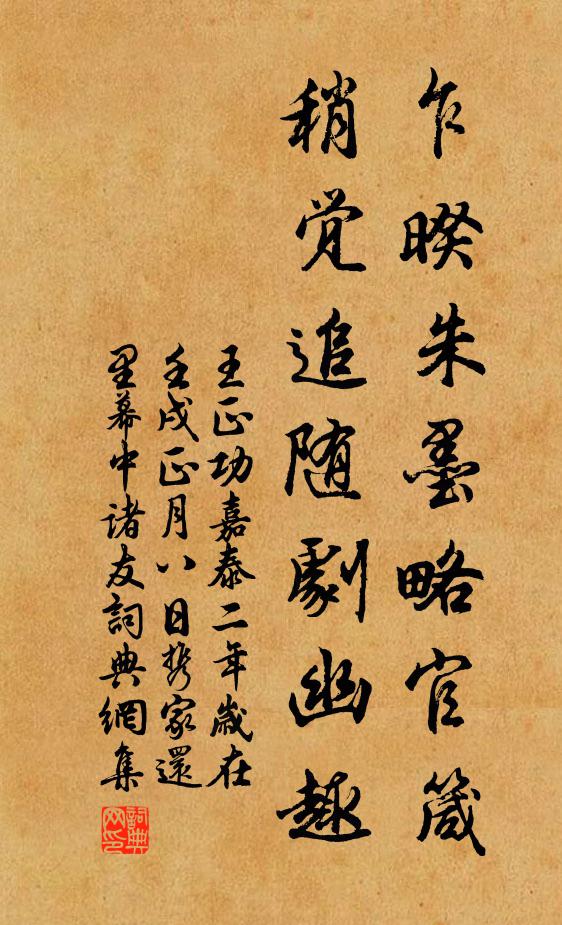 乍睽朱墨略官箴
稍觉追随剧幽趣
王正功嘉泰二年歲在
壬戌正月八日携家還
里幕中诸友詞典網集
詞典網印